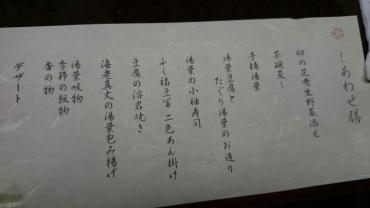 しあわせ膳
卯の花と生野菜添え
茶碗蒸し
手桶湯葉
湯葉豆腐と
たぐり湯葉のお造り
湯葉の小袖寿司
ふく福豆冨 二色あん掛け
豆腐の溶岩焼き
海老真丈の湯葉包み揚げ
湯葉吸物
季節の飯物
香の物
デザート